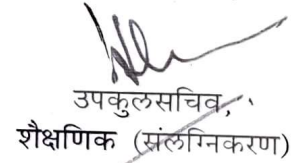 उपकुलसचिव,
शैक्षणिक (संलग्निकरण)